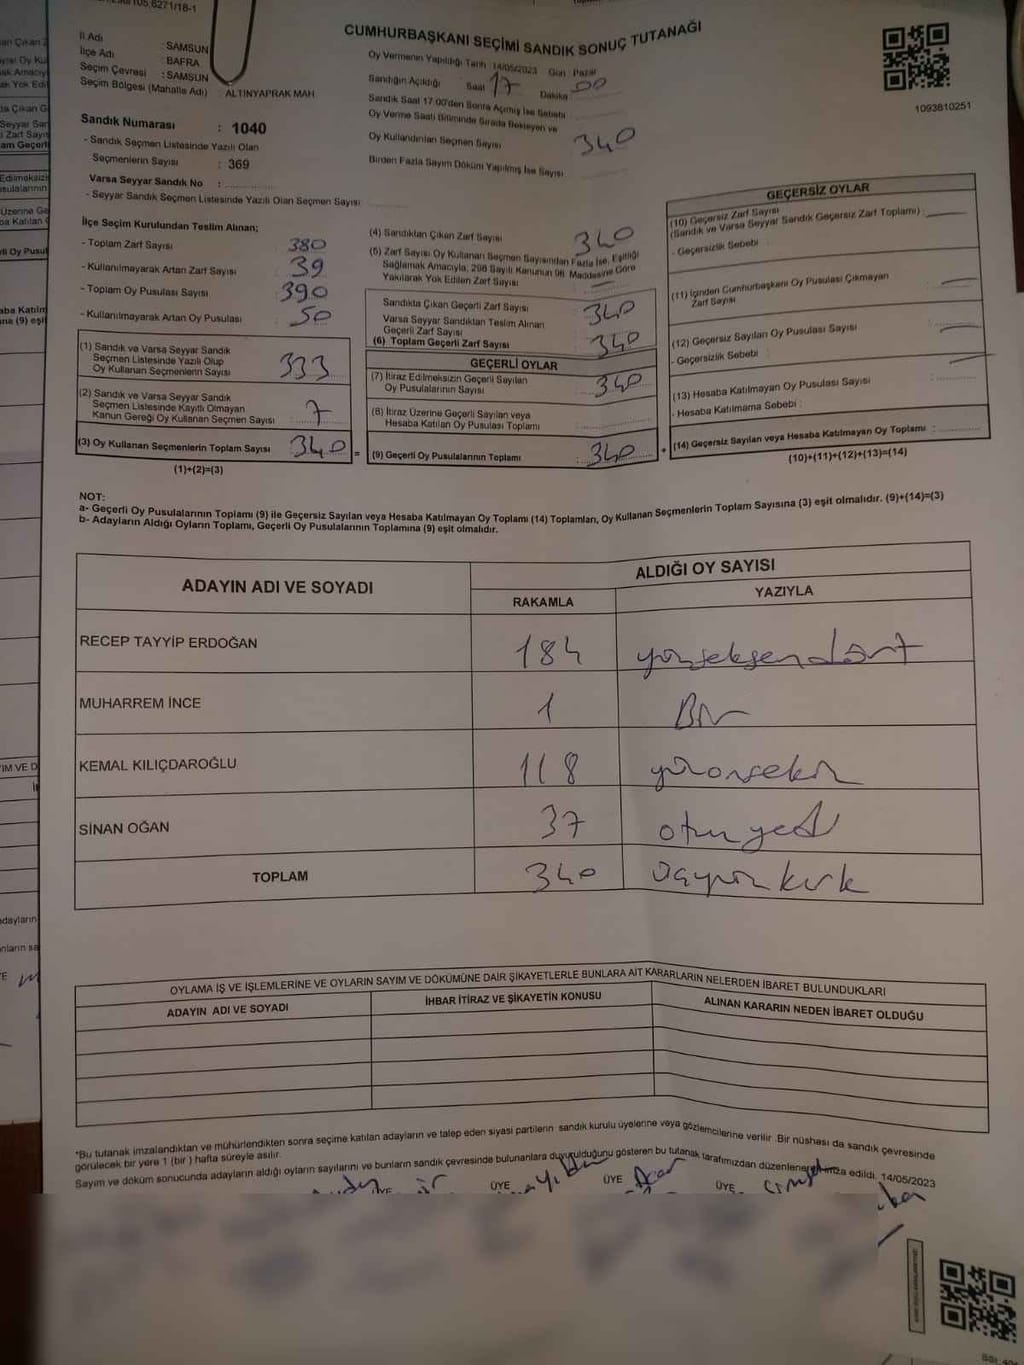 CUMHURBAŞKANI SEÇİMİ SANDIK SONUÇ TUTANAĞI
İl Adı : SAMSUN
İlçe Adı : BAFRA
Seçim Çevresi : SAMSUN
Seçim Bölgesi (Mahalle Adı) : ALTINYAPRAK MAH
Sandık Numarası : 1040
- Sandık Seçmen Listesinde Yazılı Olan
Seçmenlerin Sayısı : 369
Varsa Seyyar Sandık No :
- Seyyar Sandık Seçmen Listesinde Yazılı Olan Seçmen Sayısı
Oy Vermenin Yapıldığı Tarih : 14/05/2023 Gün : Pazar
Sandığın Açıldığı Saat 17 Dakika 00
Sandık Saat 17.00'den Sonra Açmış İse Sebebi
Oy Verme Saati Bitiminde Sırada Bekleyen ve
Oy Kullandırılan Seçmen Sayısı 340
Birden Fazla Sayım Döküm Yapılmış İse Sayısı
1093810251
İlçe Seçim Kurulundan Teslim Alınan;
- Toplam Zarf Sayısı 380
- Kullanılmayarak Artan Zarf Sayısı 39
- Toplam Oy Pusulası Sayısı 390
- Kullanılmayarak Artan Oy Pusulası 50
(1) Sandık ve Varsa Seyyar Sandık
Seçmen Listesinde Yazılı Olup
Oy Kullanan Seçmenlerin Sayısı 333
(2) Sandık ve Varsa Seyyar Sandık
Seçmen Listesinde Kayıtlı Olmayan
Kanun Gereği Oy Kullanan Seçmen Sayısı 7
(3) Oy Kullanan Seçmenlerin Toplam Sayısı 340 =
(1)+(2)=(3)
(4) Sandıktan Çıkan Zarf Sayısı 340
(5) Zarf Sayısı Oy Kullanan Seçmen Sayısından Fazla İse, Eşitliği
Sağlamak Amacıyla, 298 Sayılı Kanunun 98. Maddesine Göre
Yakılarak Yok Edilen Zarf Sayısı
Sandıkta Çıkan Geçerli Zarf Sayısı 340
Varsa Seyyar Sandıktan Teslim Alınan
Geçerli Zarf Sayısı
(6) Toplam Geçerli Zarf Sayısı 340
GEÇERLİ OYLAR
(7) İtiraz Edilmeksizin Geçerli Sayılan
Oy Pusulalarının Sayısı 340
(8) İtiraz Üzerine Geçerli Sayılan veya
Hesaba Katılan Oy Pusulası Toplamı
(9) Geçerli Oy Pusulalarının Toplamı 340 +
GEÇERSİZ OYLAR
(10) Geçersiz Zarf Sayısı
(Sandık ve Varsa Seyyar Sandık Geçersiz Zarf Toplamı) :
- Geçersizlik Sebebi :
(11) İçinden Cumhurbaşkanı Oy Pusulası Çıkmayan
Zarf Sayısı
(12) Geçersiz Sayılan Oy Pusulası Sayısı
- Geçersizlik Sebebi :
(13) Hesaba Katılmayan Oy Pusulası Sayısı
- Hesaba Katılmama Sebebi :
(14) Geçersiz Sayılan veya Hesaba Katılmayan Oy Toplamı :
(10)+(11)+(12)+(13)=(14)
NOT:
a- Geçerli Oy Pusulalarının Toplamı (9) ile Geçersiz Sayılan veya Hesaba Katılmayan Oy Toplamı (14) Toplamları, Oy Kullanan Seçmenlerin Toplam Sayısına (3) eşit olmalıdır. (9)+(14)=(3)
b- Adayların Aldığı Oyların Toplamı, Geçerli Oy Pusulalarının Toplamına (9) eşit olmalıdır.
ADAYIN ADI VE SOYADI
ALDIĞI OY SAYISI
RAKAMLA YAZIYLA
RECEP TAYYİP ERDOĞAN 184 yüzseksendört
MUHARREM İNCE 1 Bir
KEMAL KILIÇDAROĞLU 118 yüzonsekiz
SİNAN OĞAN 37 otuzyedi
TOPLAM 340 üçyüzkırk
OYLAMA İŞ VE İŞLEMLERİNE VE OYLARIN SAYIM VE DÖKÜMÜNE DAİR ŞİKAYETLERLE BUNLARA AİT KARARLARIN NELERDEN İBARET BULUNDUKLARI
ADAYIN ADI VE SOYADI
İHBAR İTİRAZ VE ŞİKAYETİN KONUSU
ALINAN KARARIN NEDEN İBARET OLDUĞU
*Bu tutanak imzalandıktan ve mühürlendikten sonra seçime katılan adayların ve talep eden siyasi partilerin sandık kurulu üyelerine veya gözlemcilerine verilir. Bir nüshası da sandık çevresinde
görülecek bir yere 1 (bir) hafta süreyle asılır.
Sayım ve döküm sonucunda adayların aldığı oyların sayılarını ve bunların sandık çevresinde bulunanlara duyurulduğunu gösteren bu tutanak tarafımızdan düzenlenerek imza edildi. 14/05/2023
ÜYE ÜYE ÜYE ÜYE